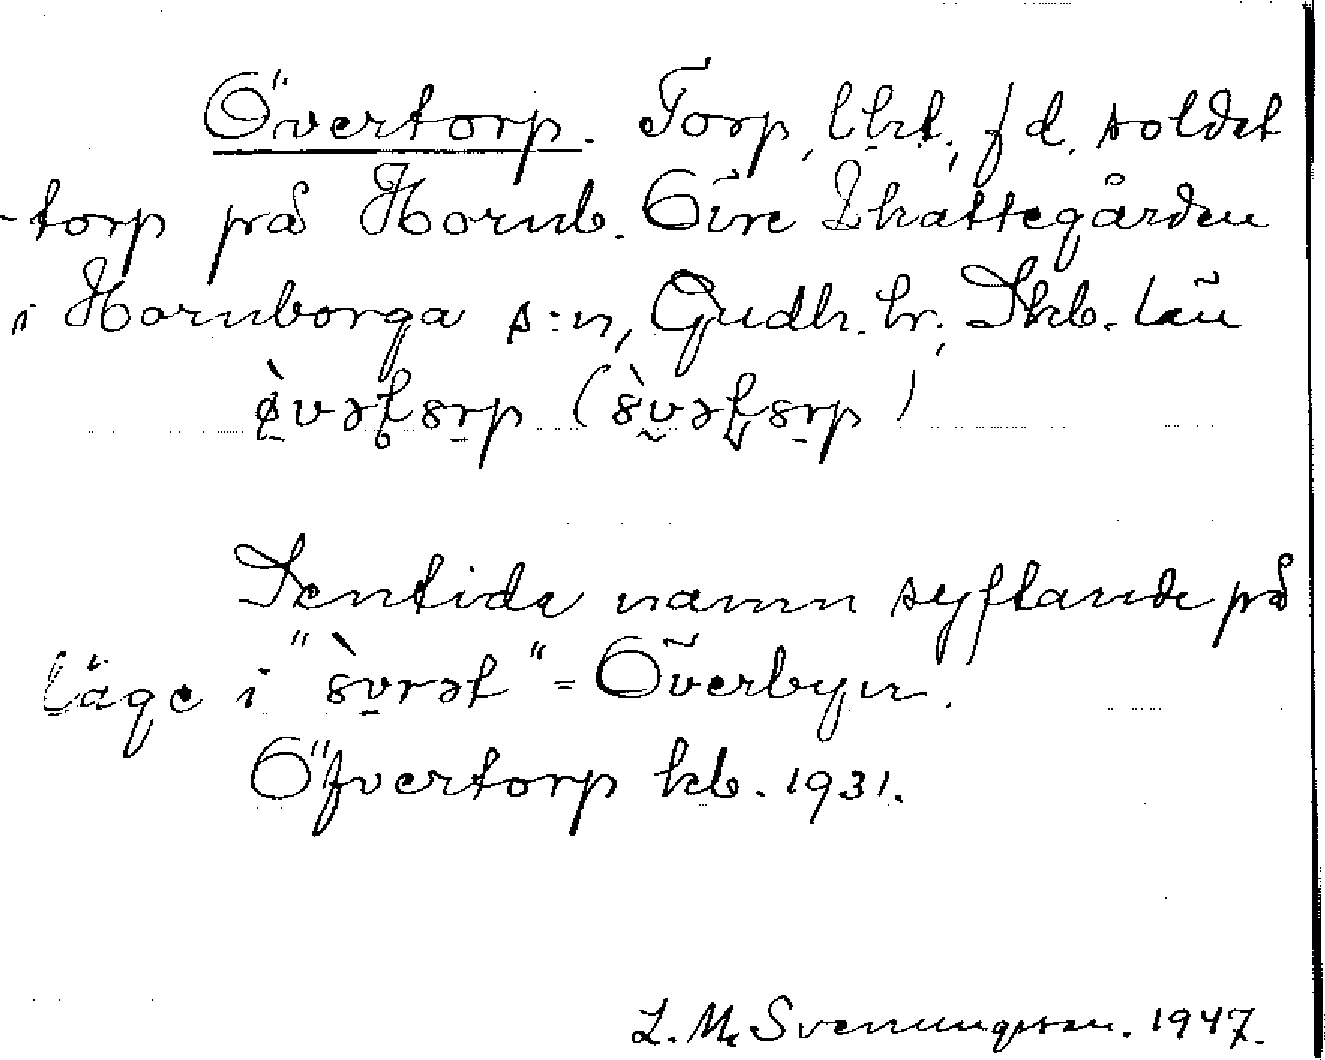 Övertorp. Torp, lht., f d. soldat
-torp på Hornb. Övre Skattegården
i Hornborga s:n, Gudh. hr., Skb. län

Sentida namn syftande på
läge i " " = Överbyn.
Öfvertorp kb. 1931.
L. M. Svenungsson. 1947.